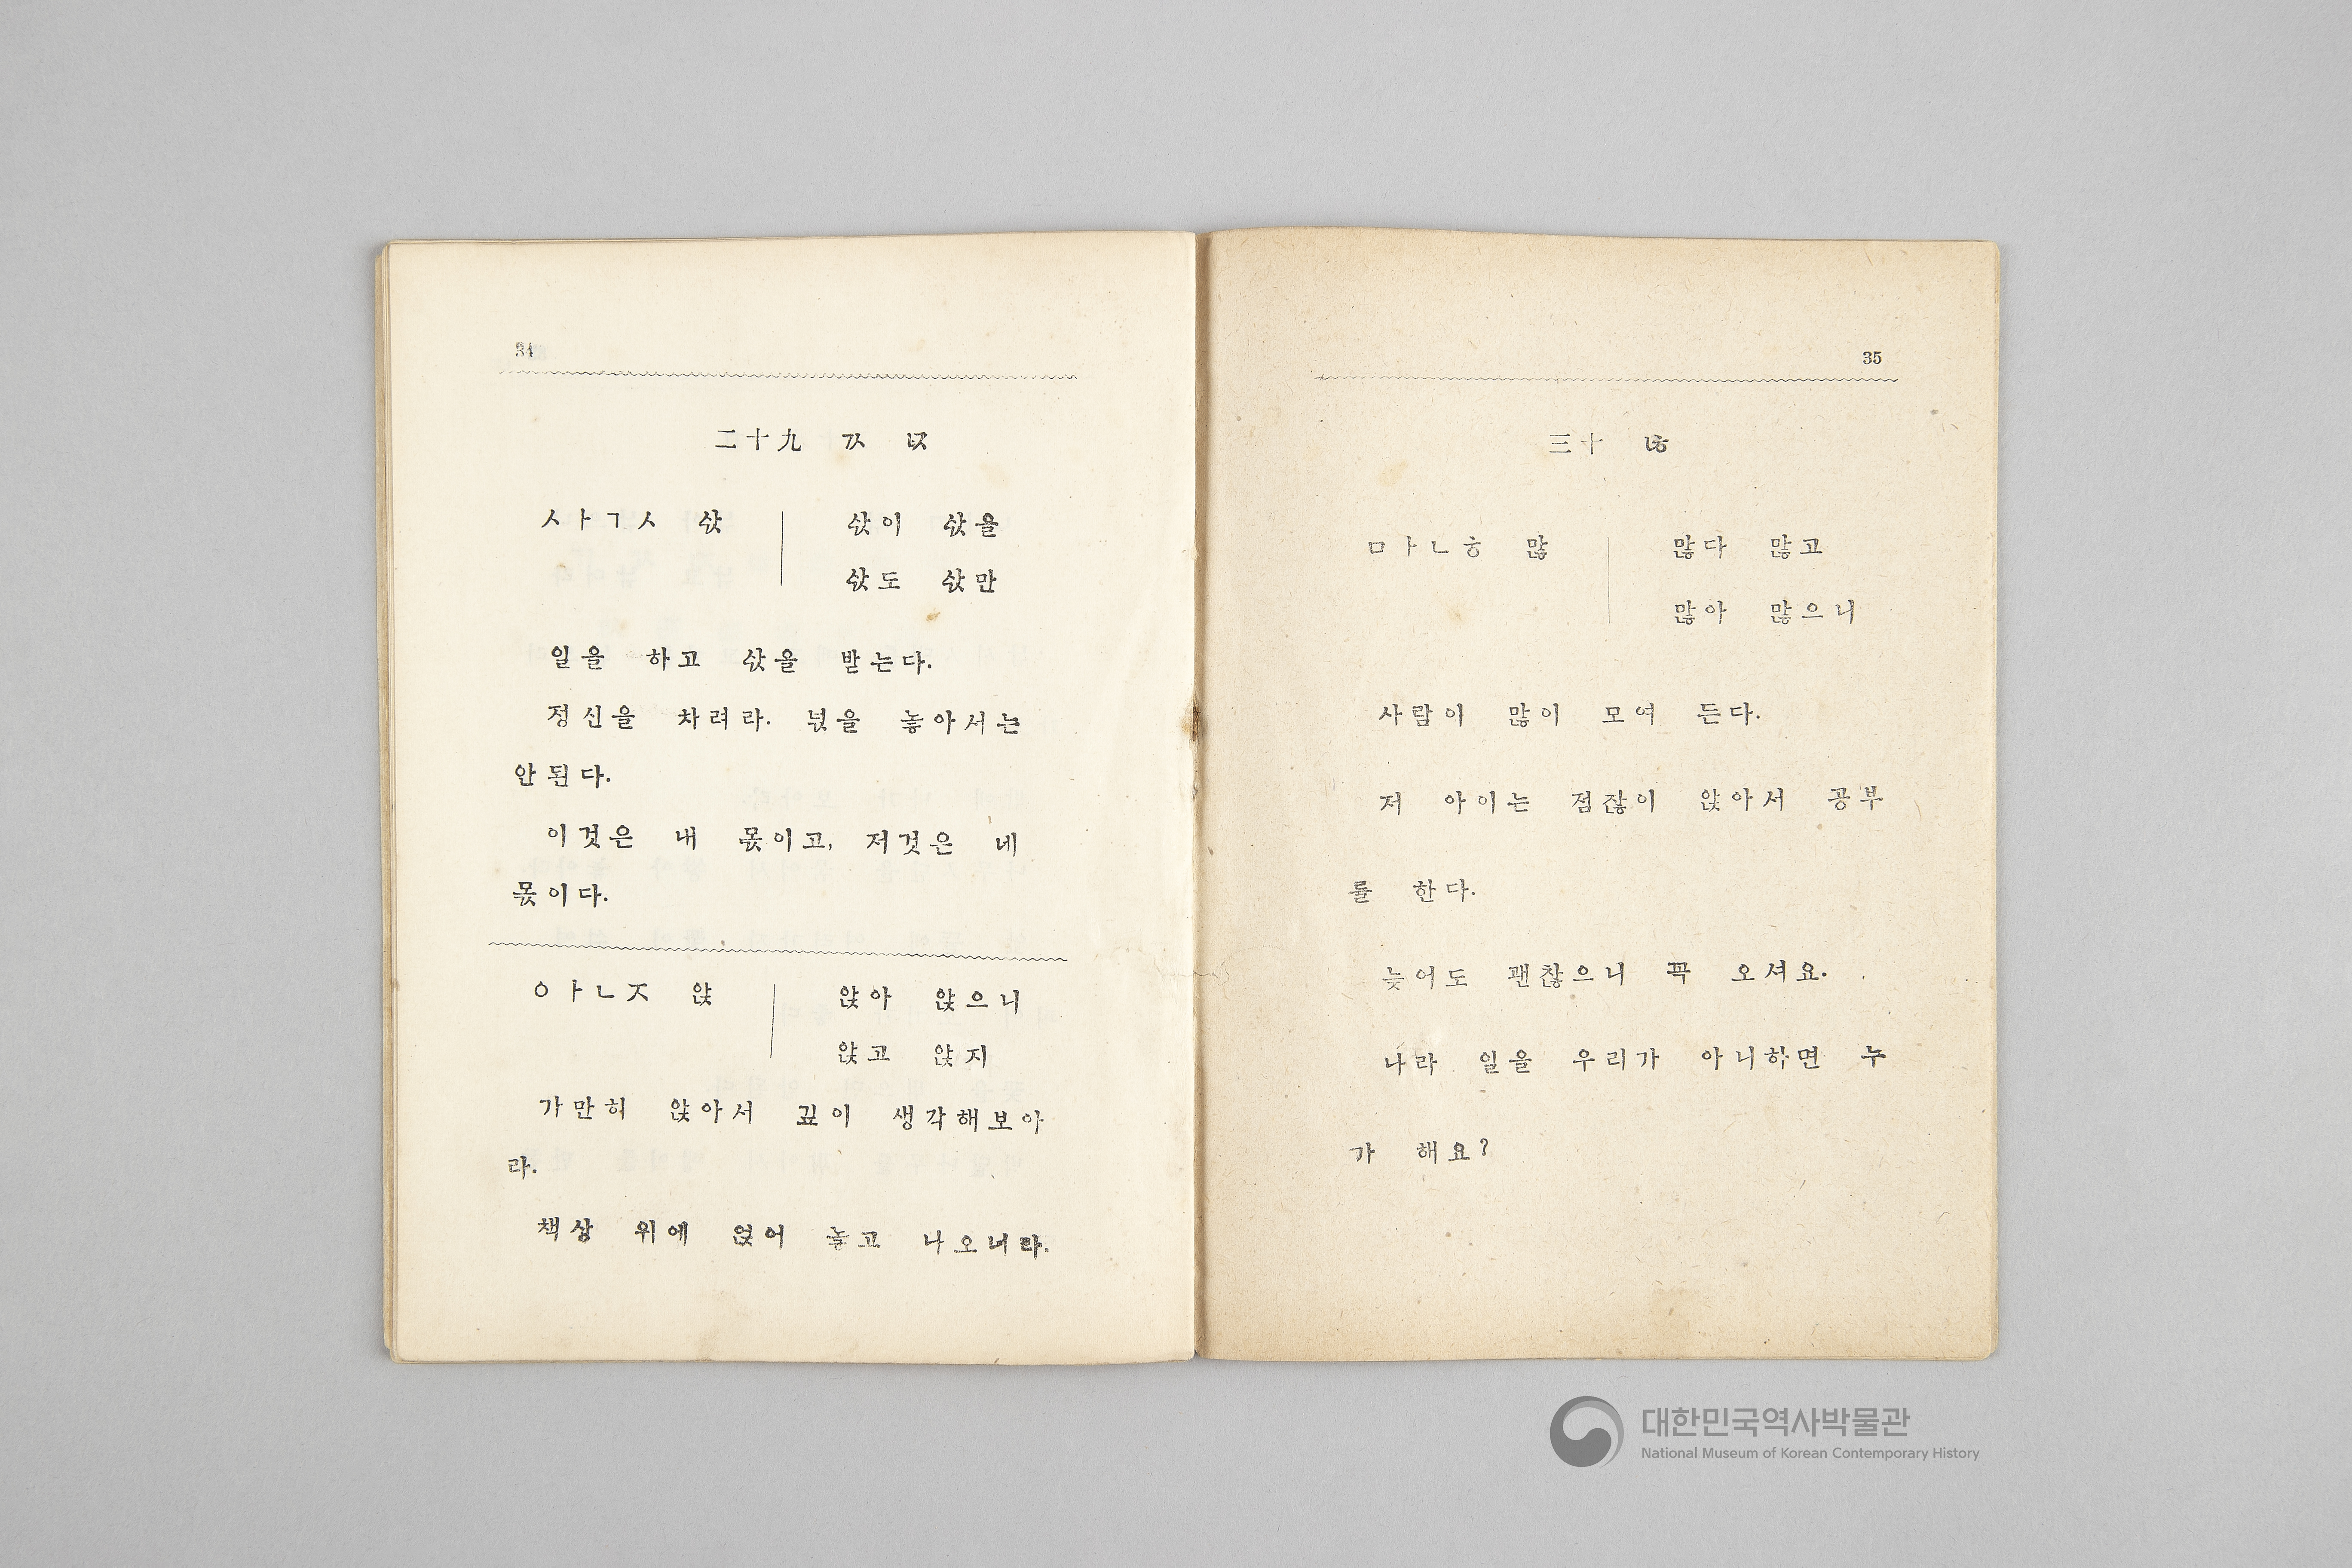 34
二十九 ㄳ ㄵ
ㅅㅏㄱㅅ 삯
삯이 삯을
삯도 삯만
일을 하고 삯을 받는다.
정신을 차려라. 넋을 놓아서는
안된다.
이것은 내 몫이고, 저것은 네
몫이다.
ㅇㅏㄴㅈ 앉
앉아 앉으니
앉고 앉지
가만히 앉아서 깊이 생각해보아
라.
책상 위에 얹어 놓고 나오너라.
35
三十 ㄶ
ㅁㅏㄴㅎ 많
많다 많고
많아 많으니
사람이 많이 모여 든다.
저 아이는 점잖이 앉아서 공부
를 한다.
늦어도 괜찮으니 꼭 오셔요.
나라 일을 우리가 아니하면 누
가 해요?
대한민국역사박물관
National Museum of Korean Contemporary History